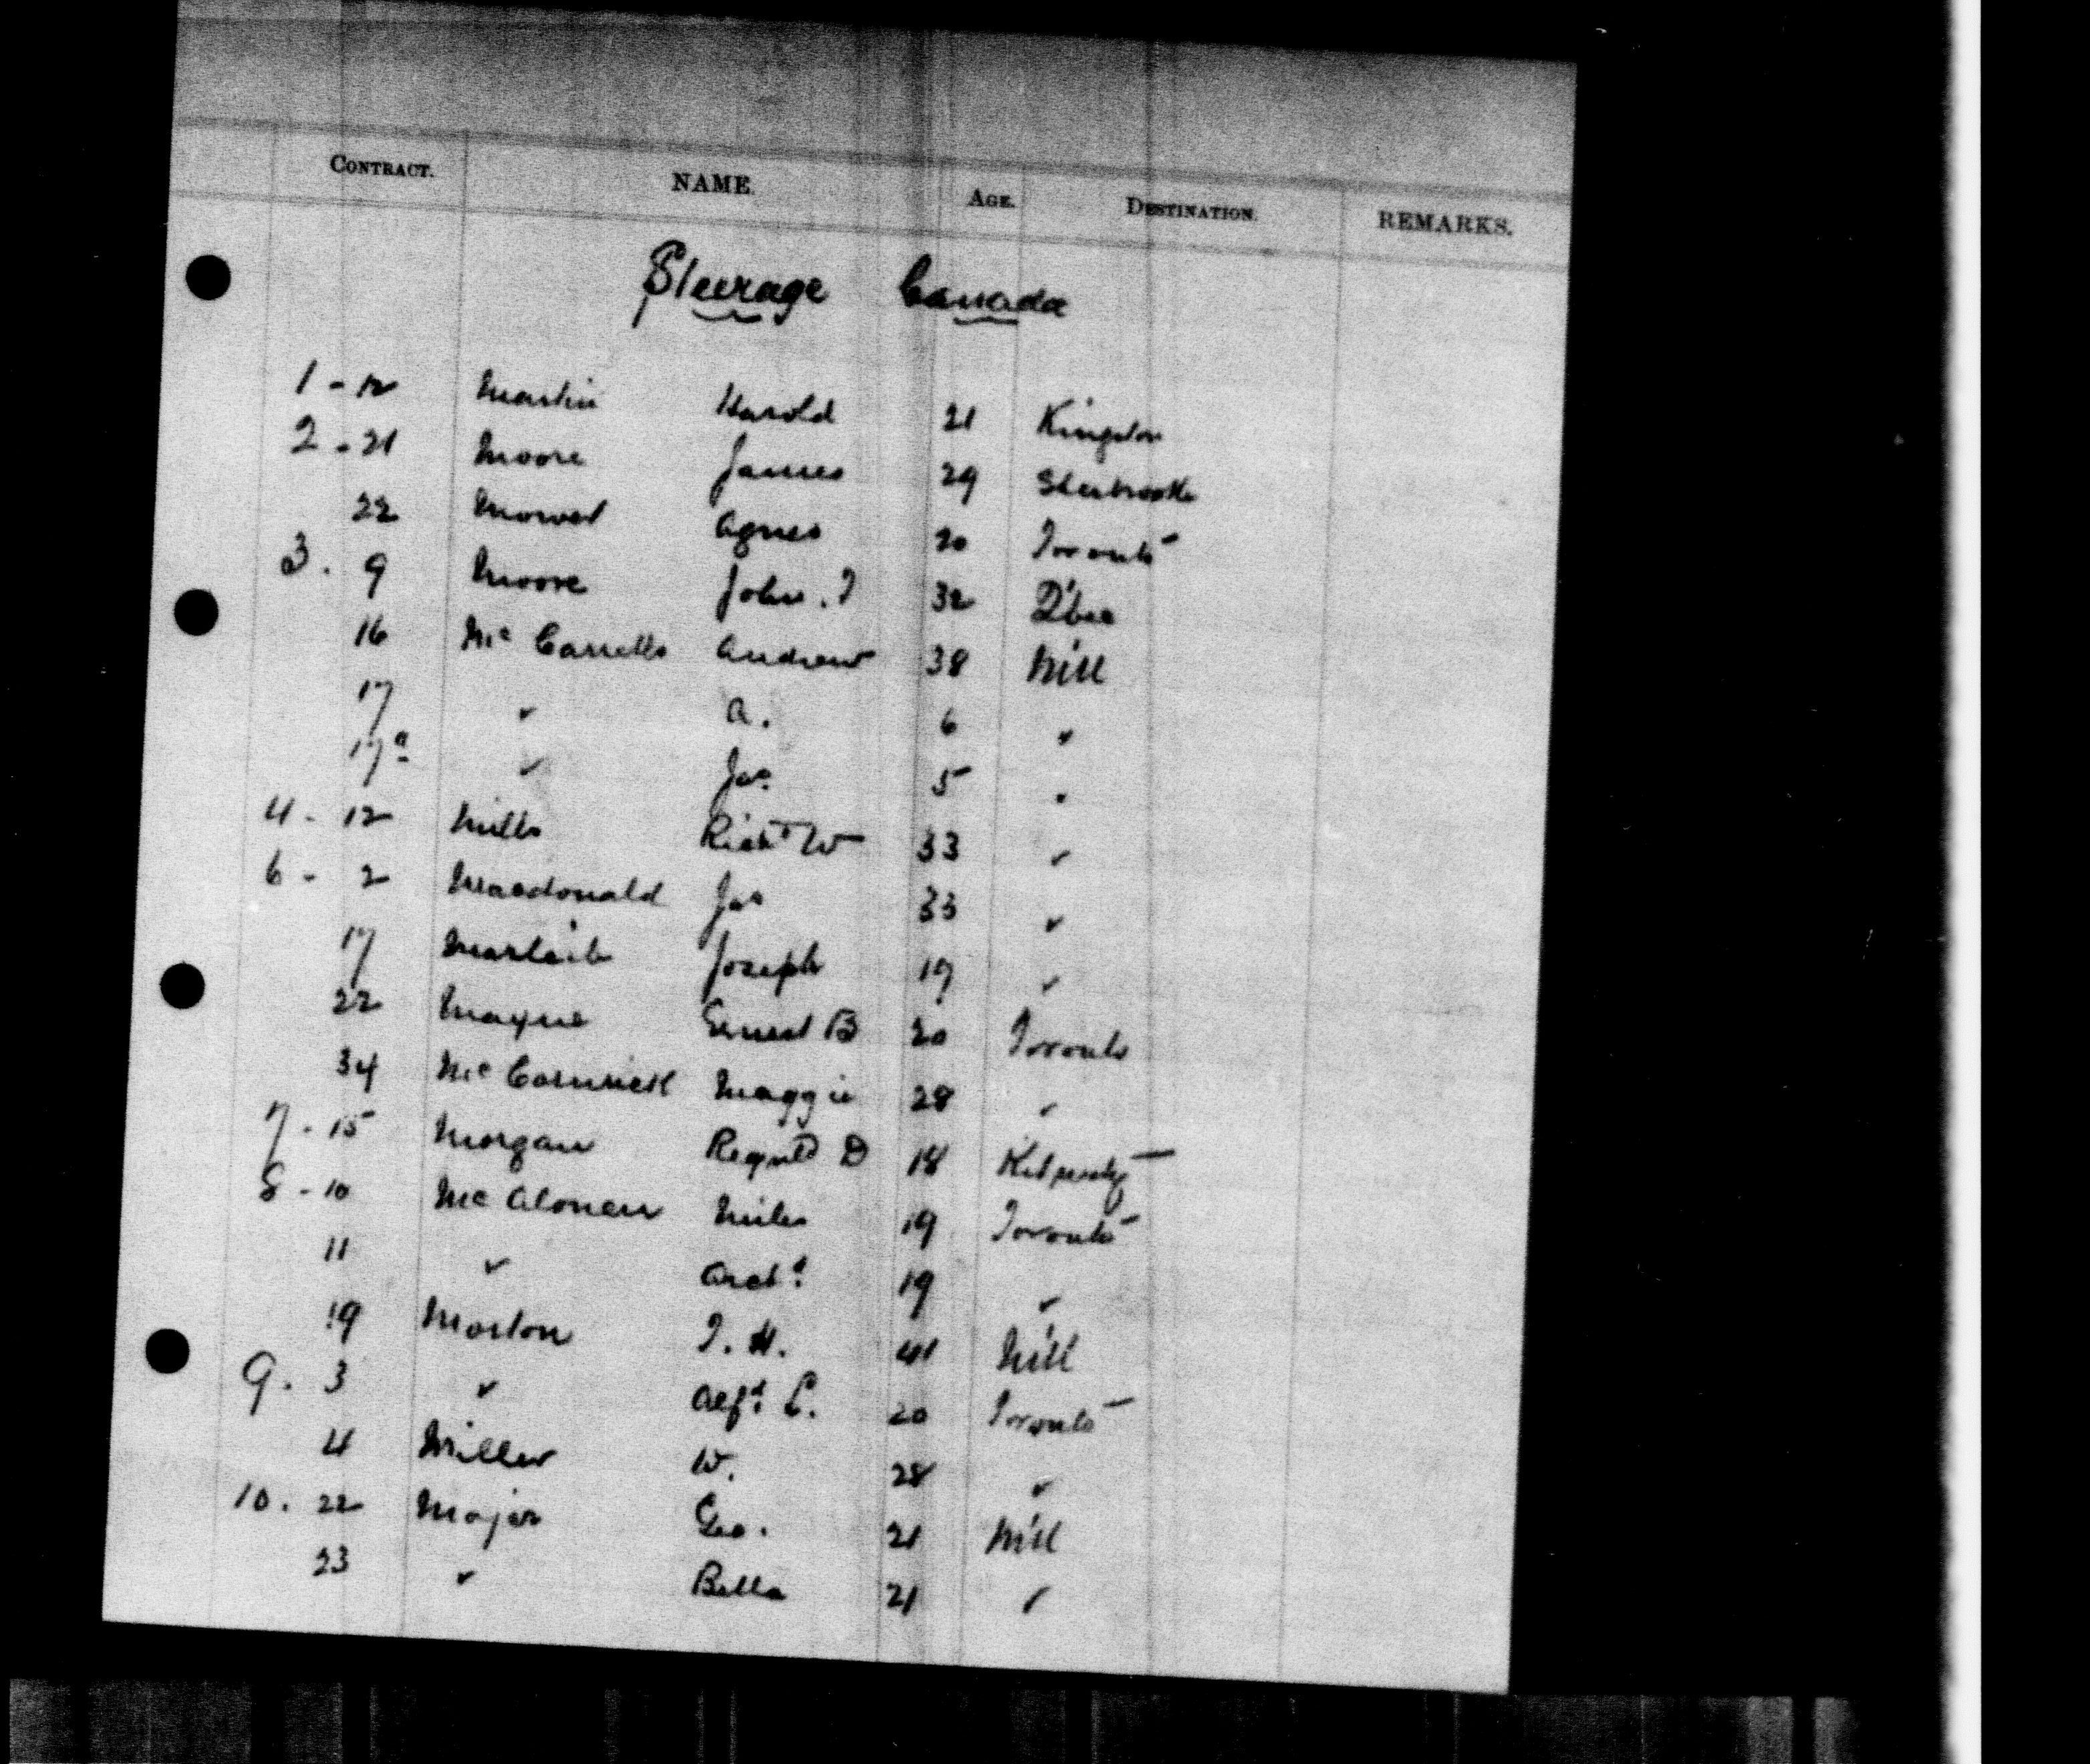 CONTRACT. NAME. AGE. DESTINATION. REMARKS.
Steerage Canada
1 - 12 Martin Harold 21 Kingston
2 - 21 Moore James 29 Sherbrooke
22 Mowat Agnes 20 Toronto
3 . 9 Moore John . T 32 Q'bec
16 Mc Carrells Andrew 38 M'll
17 " A. 6 "
17a " Jas 5 "
4 - 12 Mills Richd W 33 "
6 - 2 Macdonald Jas 33 "
17 Joseph 19 "
22 Mayne Ernest B 20 Toronto
34 Mc Cormick Maggie 28 "
7 - 15 Morgan Regnld D 18
8 - 10 Mc Alonen Miles 19 Toronto
11 " Archd 19 "
19 Morton T. H. 41 M'll
9 . 3 " Alfd C. 20 Toronto
4 Miller W. 28 "
10 . 22 Major Geo. 21 M'll
23 " Bella 21 "